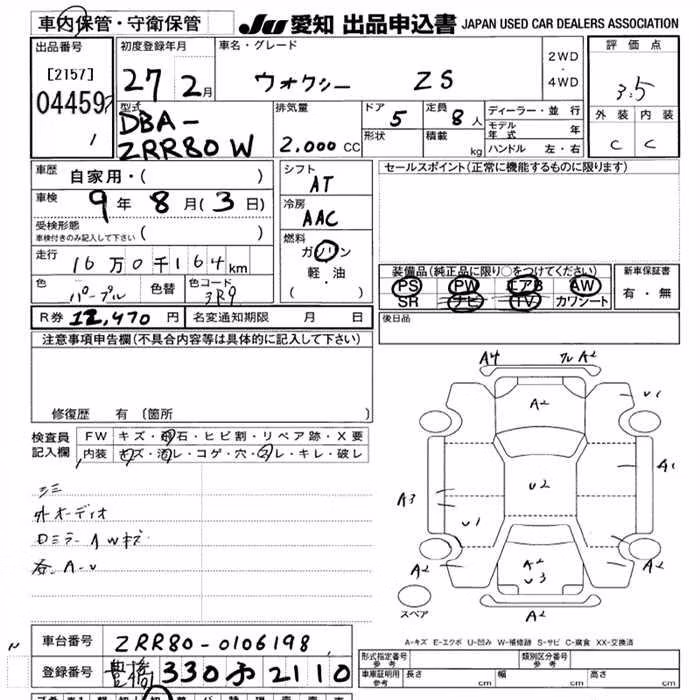 車内保管・守衛保管
JU 愛知 出品申込書 JAPAN USED CAR DEALERS ASSOCIATION
出品番号
[2157]
04459
初度登録年月
27 2月
車名・グレード
ヴォクシー ZS
2WD
・
4WD
評価点
3.5
外装 内装
C C
型式
DBA-
ZRR80W
排気量
2.000 CC
ドア
5
形状
定員
8人
積載
kg
ディーラー・並行
モデル年式 年
ハンドル 左・右
車歴
自家用・( )
車検
9年8月(3日)
受検形態
車検付きのみ記入して下さい ( )
走行
16万0千164km
色
パープル
色替
色コード
3R9
シフト
AT
冷房
AAC
燃料
ガソリン
軽・油
( )
R券 12,470 円
名変通知期限 月 日
セールスポイント(正常に機能するものに限ります)
装備品(純正品に限り○をつけてください)
PS PW エアB AW
SR ナビ TV カワシート
新車保証書
有・無
後日品
注意事項申告欄(不具合内容等は具体的に記入して下さい)
修復歴 有 (箇所
検査員
記入欄
FW キズ・飛石・ヒビ割・リペア跡・X要
内装 キズ・汚レ・コゲ・穴・スレ・キレ・破レ
外オーディオ
ロミラーAWキズ
各A-U
A4 A2
A2
U1
A1
U2
A3
U1
A2
U3
A2
A2
A2
スペア
A-キズ E-エクボ U-凹み W-補修跡 S-サビ C-腐食 XX-交換済
車台番号 ZRR80-0106198
登録番号 豊橋 330 2110
形式指定番号
参考
類別区分番号
参考
車車証明用
参考
長さ cm 幅 cm 高さ cm